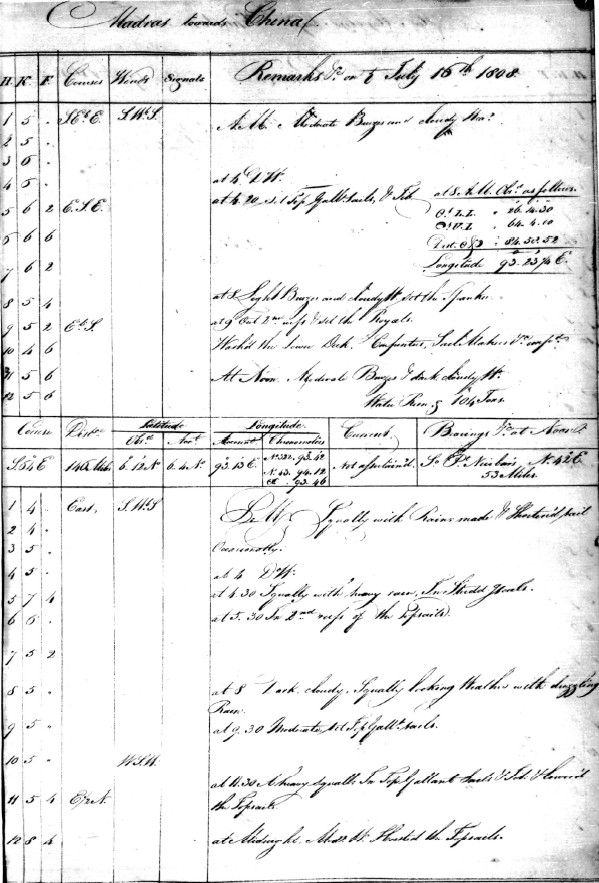 Madras towards China
H. K. F. Courses Winds Signals Remarks &c. on ♄ July 16th 1808.
1 5 . SEbE. SWbS. A.M. Moderate Breezes and cloudy Wear.
2 5 .
3 5 .
4 5 . at 4 Do W.
5 6 2 E.S.E. at 4.20 set Top Gallt. sails, & Jib. at 8 A.M. Obs. as follows.
☉ L.L. 26.14.30
☽ U.L 64.4.10
6 6 6 Dist. 84.58.52
7 6 2 Longitude 93.23¾ E.
8 5 4 at 8 Light Breezes and cloudy Wr. set the Spanker
9 5 2 EbS. at 9 Out 2nd reefs & set the Royals.
10 4 6 Wash'd the lower Deck. Carpenters, Sail Makers &c. emp'd.
11 5 6 At Noon. Moderate Breezes & dark cloudy Wr.
12 5 6 Water Remg. 104 Tons.
Course Distce Latitude Longitude Current Bearings &c. at Noon
Obsd. Acct. Account Chronometers
S.54 E 146 Miles 6.12 N 6.4 N. 93.13 E. No. 322. 93.42 Not ascertain'd. So. Pt. Nicobars N. 42 E
N. 43. 94.12 53 Miles.
93.46
1 4 . East, SWbS P.M. Squally with Rain made & Shorten'd sail
2 4 . Occasionally.
3 5 .
4 5 . at 4 Do Wr.
5 7 4 at 4.30 Squally with heavy rain, In Studdg sails.
6 6 . at 5.30 In 2nd reefs of the Topsails.
7 5 2
8 5 . at 8 Dark cloudy, Squally looking Weather with drizzling
Rain.
9 5 . at 9.30 Moderate, set Top Gallt. sails.
10 5 . W.S.W.
at 11.30 A heavy squall. In Top Gallant sails & Jib. & lower'd
11 5 4 E½N. the Topsails.
12 8 4 at Midnight. Modt. Wr. Hoisted the Topsails.